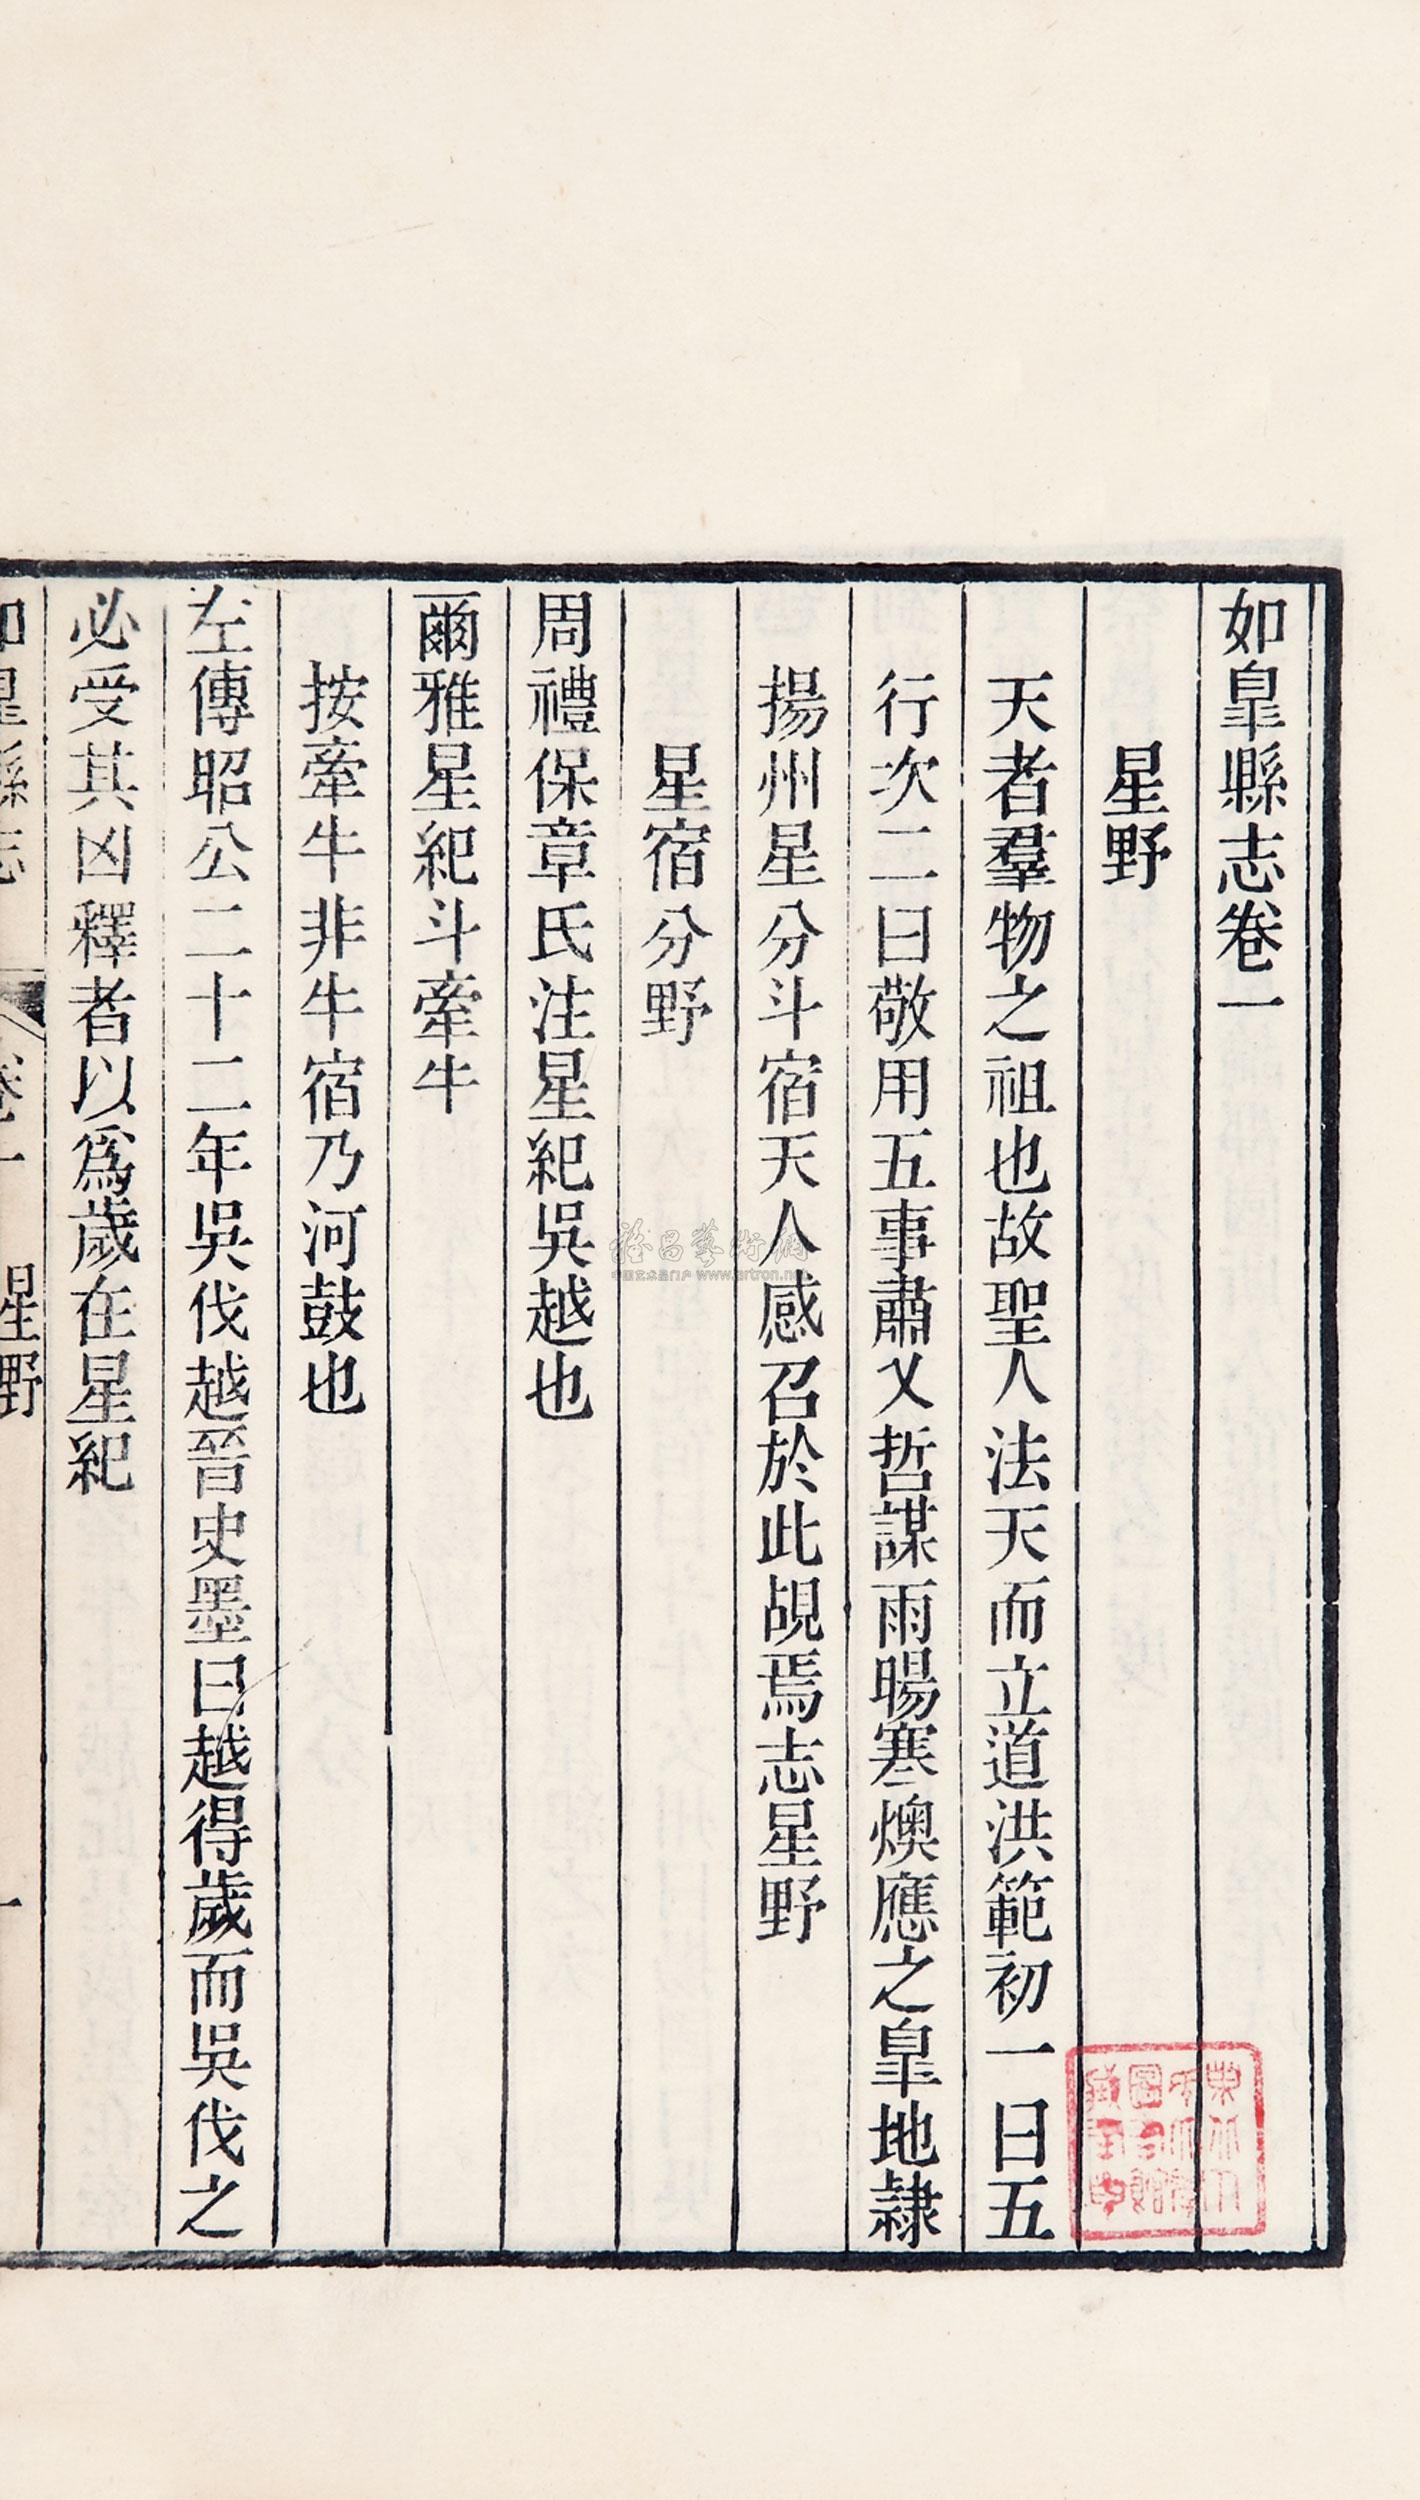 如臯縣志卷一
星野
天者羣物之祖也故聖人法天而立道洪範初一曰五
行次二曰敬用五事肅乂哲謀雨暘寒燠應之臯地隷
揚州星分斗宿天人感召於此覘焉志星野
星宿分野
周禮保章氏注星紀吳越也
爾雅星紀斗牽牛
按牽牛非牛宿乃河鼓也
左傳昭公二十二年吳伐越晉史墨曰越得歲而吳伐之
必受其凶釋者以爲歲在星紀
如臯縣志 卷一 星野 一
中国艺术品门户 www.artron.net